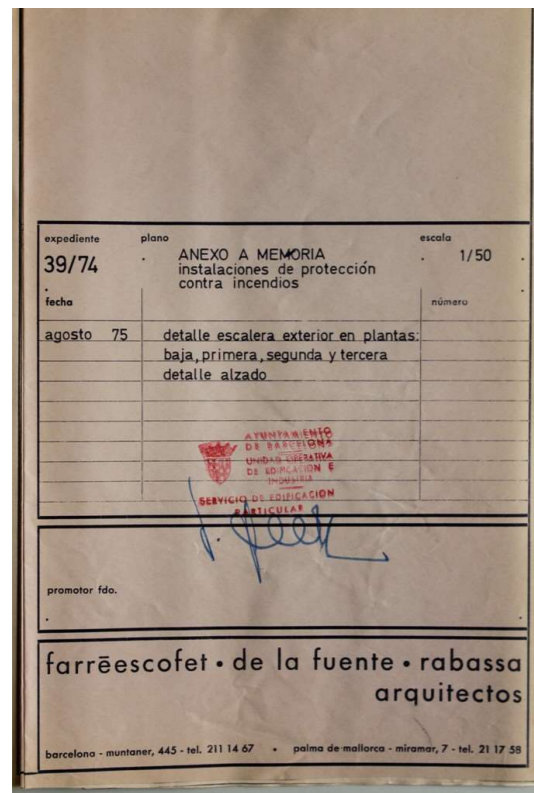 expediente plano escala
39/74 ANEXO A MEMORIA 1/50
instalaciones de protección
contra incendios
fecha número
agosto 75 detalle escalera exterior en plantas:
baja, primera, segunda y tercera
detalle alzado
AYUNTAMIENTO
DE BARCELONA
UNIDAD OPERATIVA
DE EDIFICACION E
INDUSTRIA
SERVICIO DE EDIFICACION
PARTICULAR
promotor fdo.
farrēescofet • de la fuente • rabassa
arquitectos
barcelona - muntaner, 445 - tel. 211 14 67 • palma de mallorca - miramar, 7 - tel. 21 17 58